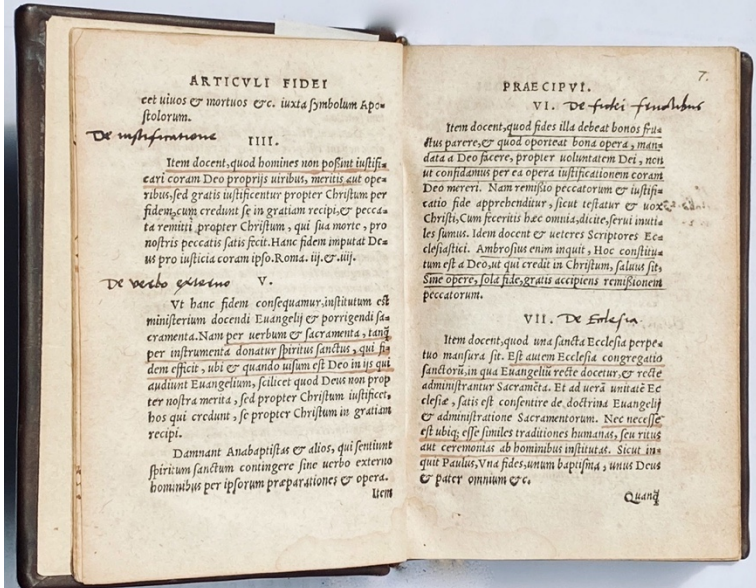 ARTICVLI FIDEI
cet uiuos & mortuos &c. iuxta symbolum Apo-
stolorum.
De iustificatione
IIII.
Item docent, quod homines non possint iustifi-
cari coram Deo proprijs uiribus, meritis aut ope-
ribus, sed gratis iustificentur propter Christum per
fidem, cum credunt se in gratiam recipi, & pecca-
ta remitti propter Christum, qui sua morte, pro
nostris peccatis satis fecit. Hanc fidem imputat De-
us pro iusticia coram ipso. Roma. iij. & .iiij.
De verbo externo
V.
Vt hanc fidem consequamur, institutum est
ministerium docendi Euangelij & porrigendi sa-
cramenta. Nam per uerbum & sacramenta, tanq̃
per instrumenta donatur spiritus sanctus, qui fi-
dem efficit, ubi & quando uisum est Deo in ijs qui
audiunt Euangelium, scilicet quod Deus non prop
ter nostra merita, sed propter Christum iustificet,
hos qui credunt, se propter Christum in gratiam
recipi.
Damnant Anabaptistas & alios, qui sentiunt
spiritum sanctum contingere sine uerbo externo
hominibus per ipsorum præparationes & opera.
Item
7.
PRAECIPVI.
VI. De fidei
Item docent, quod fides illa debeat bonos fru-
ctus parere, & quod oporteat bona opera, man-
data a Deo facere, propter voluntatem Dei, non
ut confidamus per ea opera iustificationem coram
Deo mereri. Nam remissio peccatorum & iustifi-
catio fide apprehenditur, sicut testatur & uox
Christi, Cum feceritis hæc omnia, dicite, serui inuti-
les sumus. Idem docent & ueteres Scriptores Ec-
clesiastici. Ambrosius enim inquit, Hoc constitu-
tum est a Deo, ut qui credit in Christum, saluus sit,
Sine opere, sola fide, gratis accipiens remissionem
peccatorum.
VII. De Ecclesia.
Item docent, quod una sancta Ecclesia perpe-
tuo mansura sit. Est autem Ecclesia congregatio
sanctorũ, in qua Euangeliũ recte docetur, & recte
administrantur Sacramẽta. Et ad uerã unitatẽ Ec
clesiæ, satis est consentire de doctrina Euangelij
& administratione Sacramentorum. Nec necesse
est ubiq; esse similes traditiones humanas, seu ritus
aut ceremonias ab hominibus institutas. Sicut in-
quit Paulus, Vna fides, unum baptisma, unus Deus
& pater omnium &c.
Quanq̃